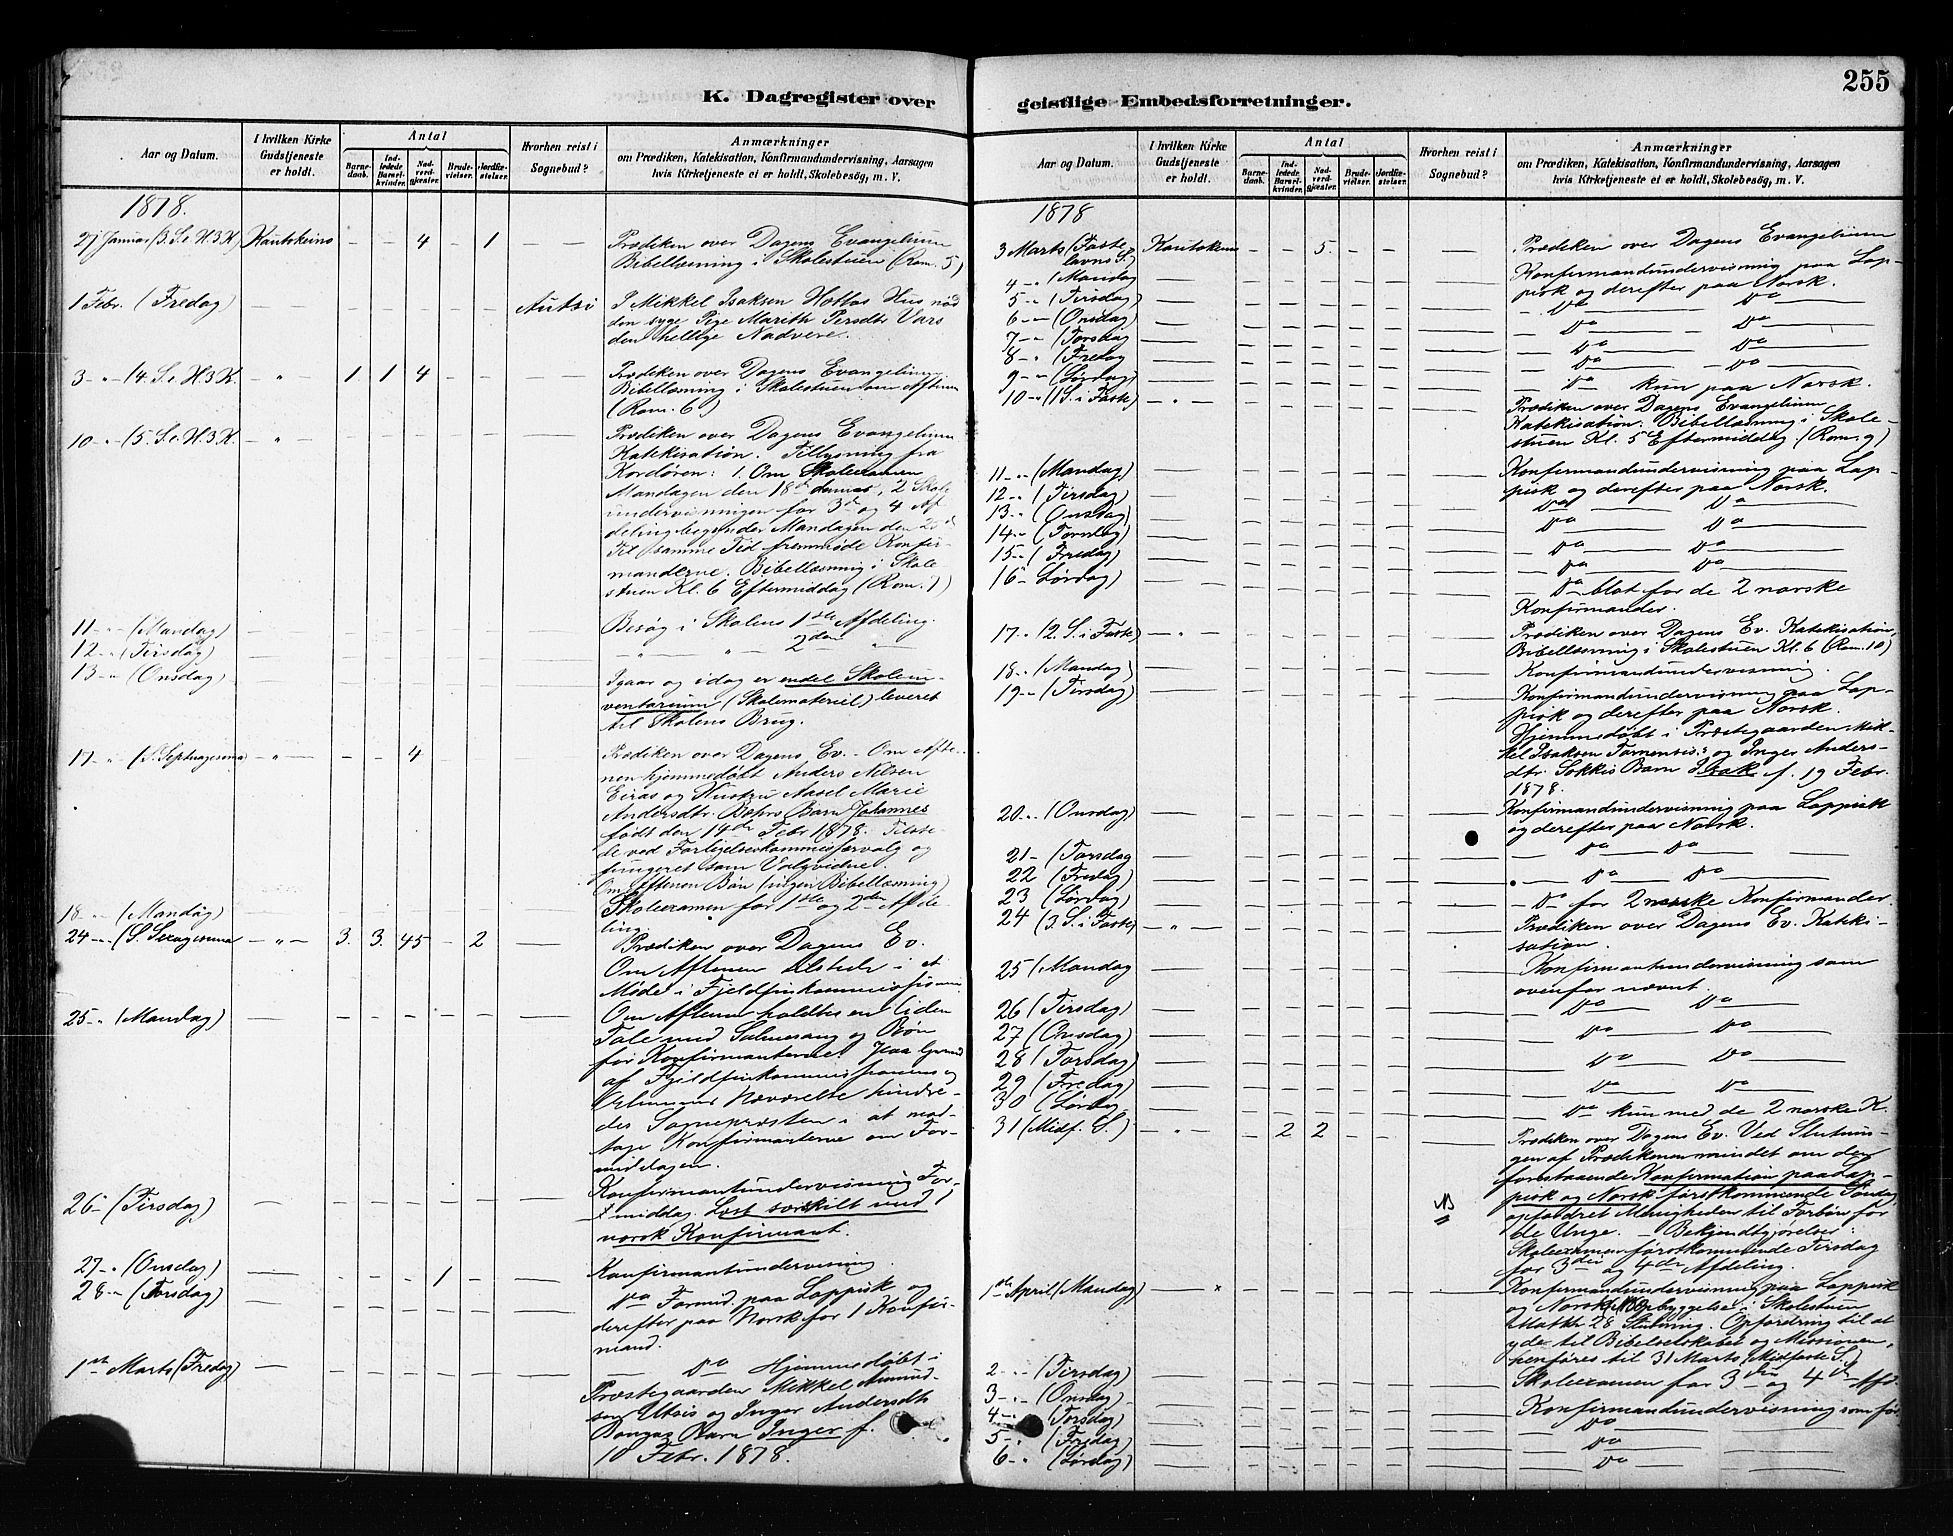 255
K. Dagregister over geistlige Embedsforretninger.
Aar og Datum.
I hvilken Kirke Gudstjeneste er holdt.
Antal
Barnedaab.
Indledede Barselkvinder.
Nadverdgjester.
Brudevielser.
Jordfæstelser.
Hvorhen reist i Sognebud?
Anmærkninger
om Prædiken, Katekisation, Konfirmandundervisning, Aarsagen
hvis Kirketjeneste ei er holdt, Skolebesög, m. V.
1878.
27 Januar (3. S. e. H.3.K) Kautokeino — — 4 — 1 — Prædiken over Dagens Evangelium
Bibellæsning i Skolestuen (Rom. 5)
1 Febr. (Fredag) — — — — — — Autsi I Mikkel Isaksen Hættas Hus nød
den syge Pige Marith Persdtr Vars
den hellige Nadvere.
3 — " (4. S. e. H.3.K. — " — 1 1 4 — — — Prædiken over Dagens Evangelium
Bibellæsning i Skolestuen om Aftenen
(Rom. 6)
10 — " (5. S. e. H.3.K. " — — — — — — Prædiken over Dagens Evangelium
Katekisation. Tillysning fra
Kordøren: 1. Om Skoleexamen
Mandagen den 18de dennes, 2 Skole
undervisningen for 3die og 4 Af
deling begynder Mandagen den
Til samme Tid fremmøde Konfir
manderne. Bibellæsning i Skole
stuen Kl. 6 Eftermiddag (Rom. 7)
11 — " (Mandag) — — — — — — Besøg i Skolens 1ste Afdeling.
12 — " (Tirsdag) — — — — — — " " 2den "
13 — " (Onsdag) — — — — — — Igaar og idag er endel Skolein-
ventarium (Skolemateriel) leveret
til Skolens Brug.
17 " (S. Septuagesima — " — — — 4 Prædiken over Dagens Ev. — Om Afte
nen hjemmedøbt Anders Nilsen
Eiras og Hustru Aasel Marie
Andersdtr. Bæhrs Barn Johannes
født den 14de Febr 1878. Tilste
de ved Forligelseskommissærvalg og
fungeret som Valgvidne.
Om Aftenen Bøn (ingen Bibellæsning)
18 " (Mandag) — — — — — — Skoleexamen for 1ste og 2den Afde
ling
24 — " (S. Sexagesima — " — 3. 3. 45 — 2 — Prædiken over Dagens Ev.
Om Aftenen tilstede i et
Møde i Fjeldfinkommissionen
25 — " (Mandag) — — — — — — Om Aftenen holdtes en liden
Tale med Salmesang og Bøn
for Konfirmanterne. Paa Grund
af Fjeldfinkommissionens
Nærværelse hindre-
des Sognepræsten i at mod-
tage Konfirmanterne om For-
middagen.
26 — (Tirsdag) — — — — — — Konfirmantundervisning For-
middag. Læst særskilt med 1
norsk Konfirmant.
27 — " (Onsdag) — — — — 1 — — Konfirmantundervisning.
28 — " (Torsdag) — — — — — — Do Formid. paa Lappisk og
derefter paa Norsk for 1 Konfir-
mand.
1ste Marts (Fredag) — — — — — — Do Hjemmedøbt i
Præstegaarden Mikkel Amund-
sen Utsis og Inger Andersdtr
Bongas Barn Inger f.
10 Febr. 1878.
Aar og Datum.
I hvilken Kirke Gudstjeneste er holdt.
Antal
Barnedaab.
Indledede Barselkvinder.
Nadverdgjester.
Brudevielser.
Jordfæstelser.
Hvorhen reist i Sognebud?
Anmærkninger
om Prædiken, Katekisation, Konfirmandundervisning, Aarsagen
hvis Kirketjeneste ei er holdt, Skolebesög, m. V.
1878
3 Marts (Faste lavns S.) Kautokeino — — 5. — — — Prædiken over Dagens Evangelium
4 — " (Mandag — Konfirmandundervisning paa Lap-
pisk og derefter paa Norsk.
5 — " (Tirsdag) — Do — Do —
6 — " (Onsdag) — Do — Do —
7 — " (Torsdag — Do — Do —
8 — " (Fredag — Do — Do —
9 — " (Lørdag) — Do kun paa Norsk.
10 — " (1 S. i Faste) — " — Prædiken over Dagens Evangelium
Katekisation. Bibellæsning i Skole-
stuen Kl. 5 Eftermiddag. (Rom. 9)
11 — " (Mandag) — Konfirmandundervisning paa Lap-
pisk og derefter paa Norsk.
12 — " (Tirsdag) — Do — Do —
13 — " (Onsdag) — Do — Do —
14 — " (Torsdag) — Do — Do —
15 — " (Fredag) — Do — Do —
16 — Lørdag) — Do — blot for de 2 norske
Konfirmander.
17 — " (2. S. i Faste) — " — Prædiken over Dagens Ev. Katekisation,
Bibellæsning i Skolestuen Kl. 6 (Rom. 10)
18 — " (Mandag) — Konfirmandundervisning.
19 — " (Tirsdag) — Konfirmandundervisning paa Lap-
pisk og derefter paa Norsk.
Hjemmedøbt i Præstegaarden Mik-
kel Isaksen Tornensis' og Inger Anders-
dtr. Sokkis Barn Isak f. 19 Febr.
1878.
20 — " (Onsdag) — Konfirmandundervisning paa Lappisk
og derefter paa Norsk.
21 — (Torsdag — Do — Do —
22 (Fredag) — Do — Do —
23 (Lørdag) — Do for 2 norske Konfirmander.
24 (3. S. i Faste) — " — Prædiken over Dagens Ev. Kateki-
sation.
25 (Mandag — Konfirmantundervisning som
ovenfor nævnt.
26 (Tirsdag) — Do — Do —
27 (Onsdag) — Do — Do —
28 (Torsdag) — Do — Do —
29 (Fredag) — Do — Do —
30 (Lørdag — Do kun med de 2 norske K.
31 (Midf. S.) — " — — 2 2 — — — Prædiken over Dagens Ev. Ved Slutnin-
gen af Prædikenen mindet om den
forestaaende Konfirmation paa Lap-
pisk og Norsk førstkommende Søndag
NB
opfordret Menigheden til Forbøn for
de Unge. — Bekjendtgjørelse:
Skoleexamen førstkommende Tirsdag
for 3die og 4de Afdeling.
1ste April (Mandag) — × Konfirmandundervisning paa Lappisk
og Norsk. (NB. Opbyggelse i Skolestuen
Matth 28 Slutning. Opfordring til at
yde til Bibelselskabet og Missionen,
henføres til 31 Marts (Midfaste S.)
2 — " (Tirsdag) — Skoleexamen for 3die og 4de Afd.
3 — " (Onsdag) — Konfirmandundervisning som før
4 — " (Torsdag) — Do
5 — " (Fredag) — Do
6 — " (Lørdag) — Do